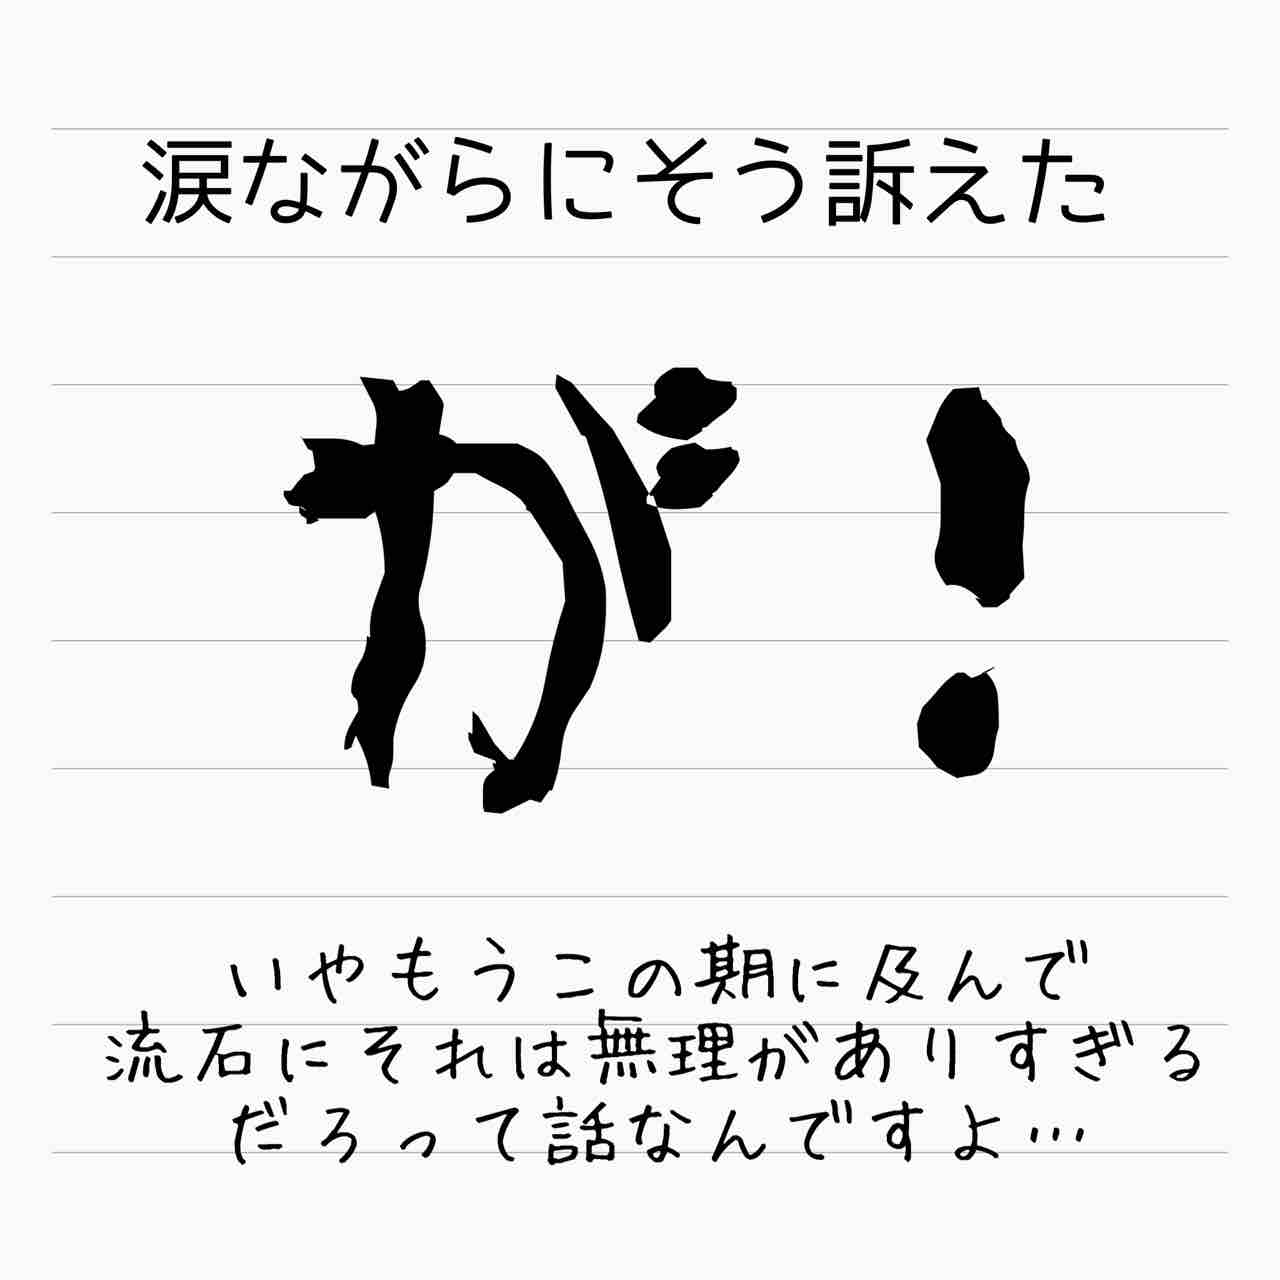 涙ながらにそう訴えた
が！
いやもうこの期に及んで
流石にそれは無理がありすぎる
だろって話なんですよ…